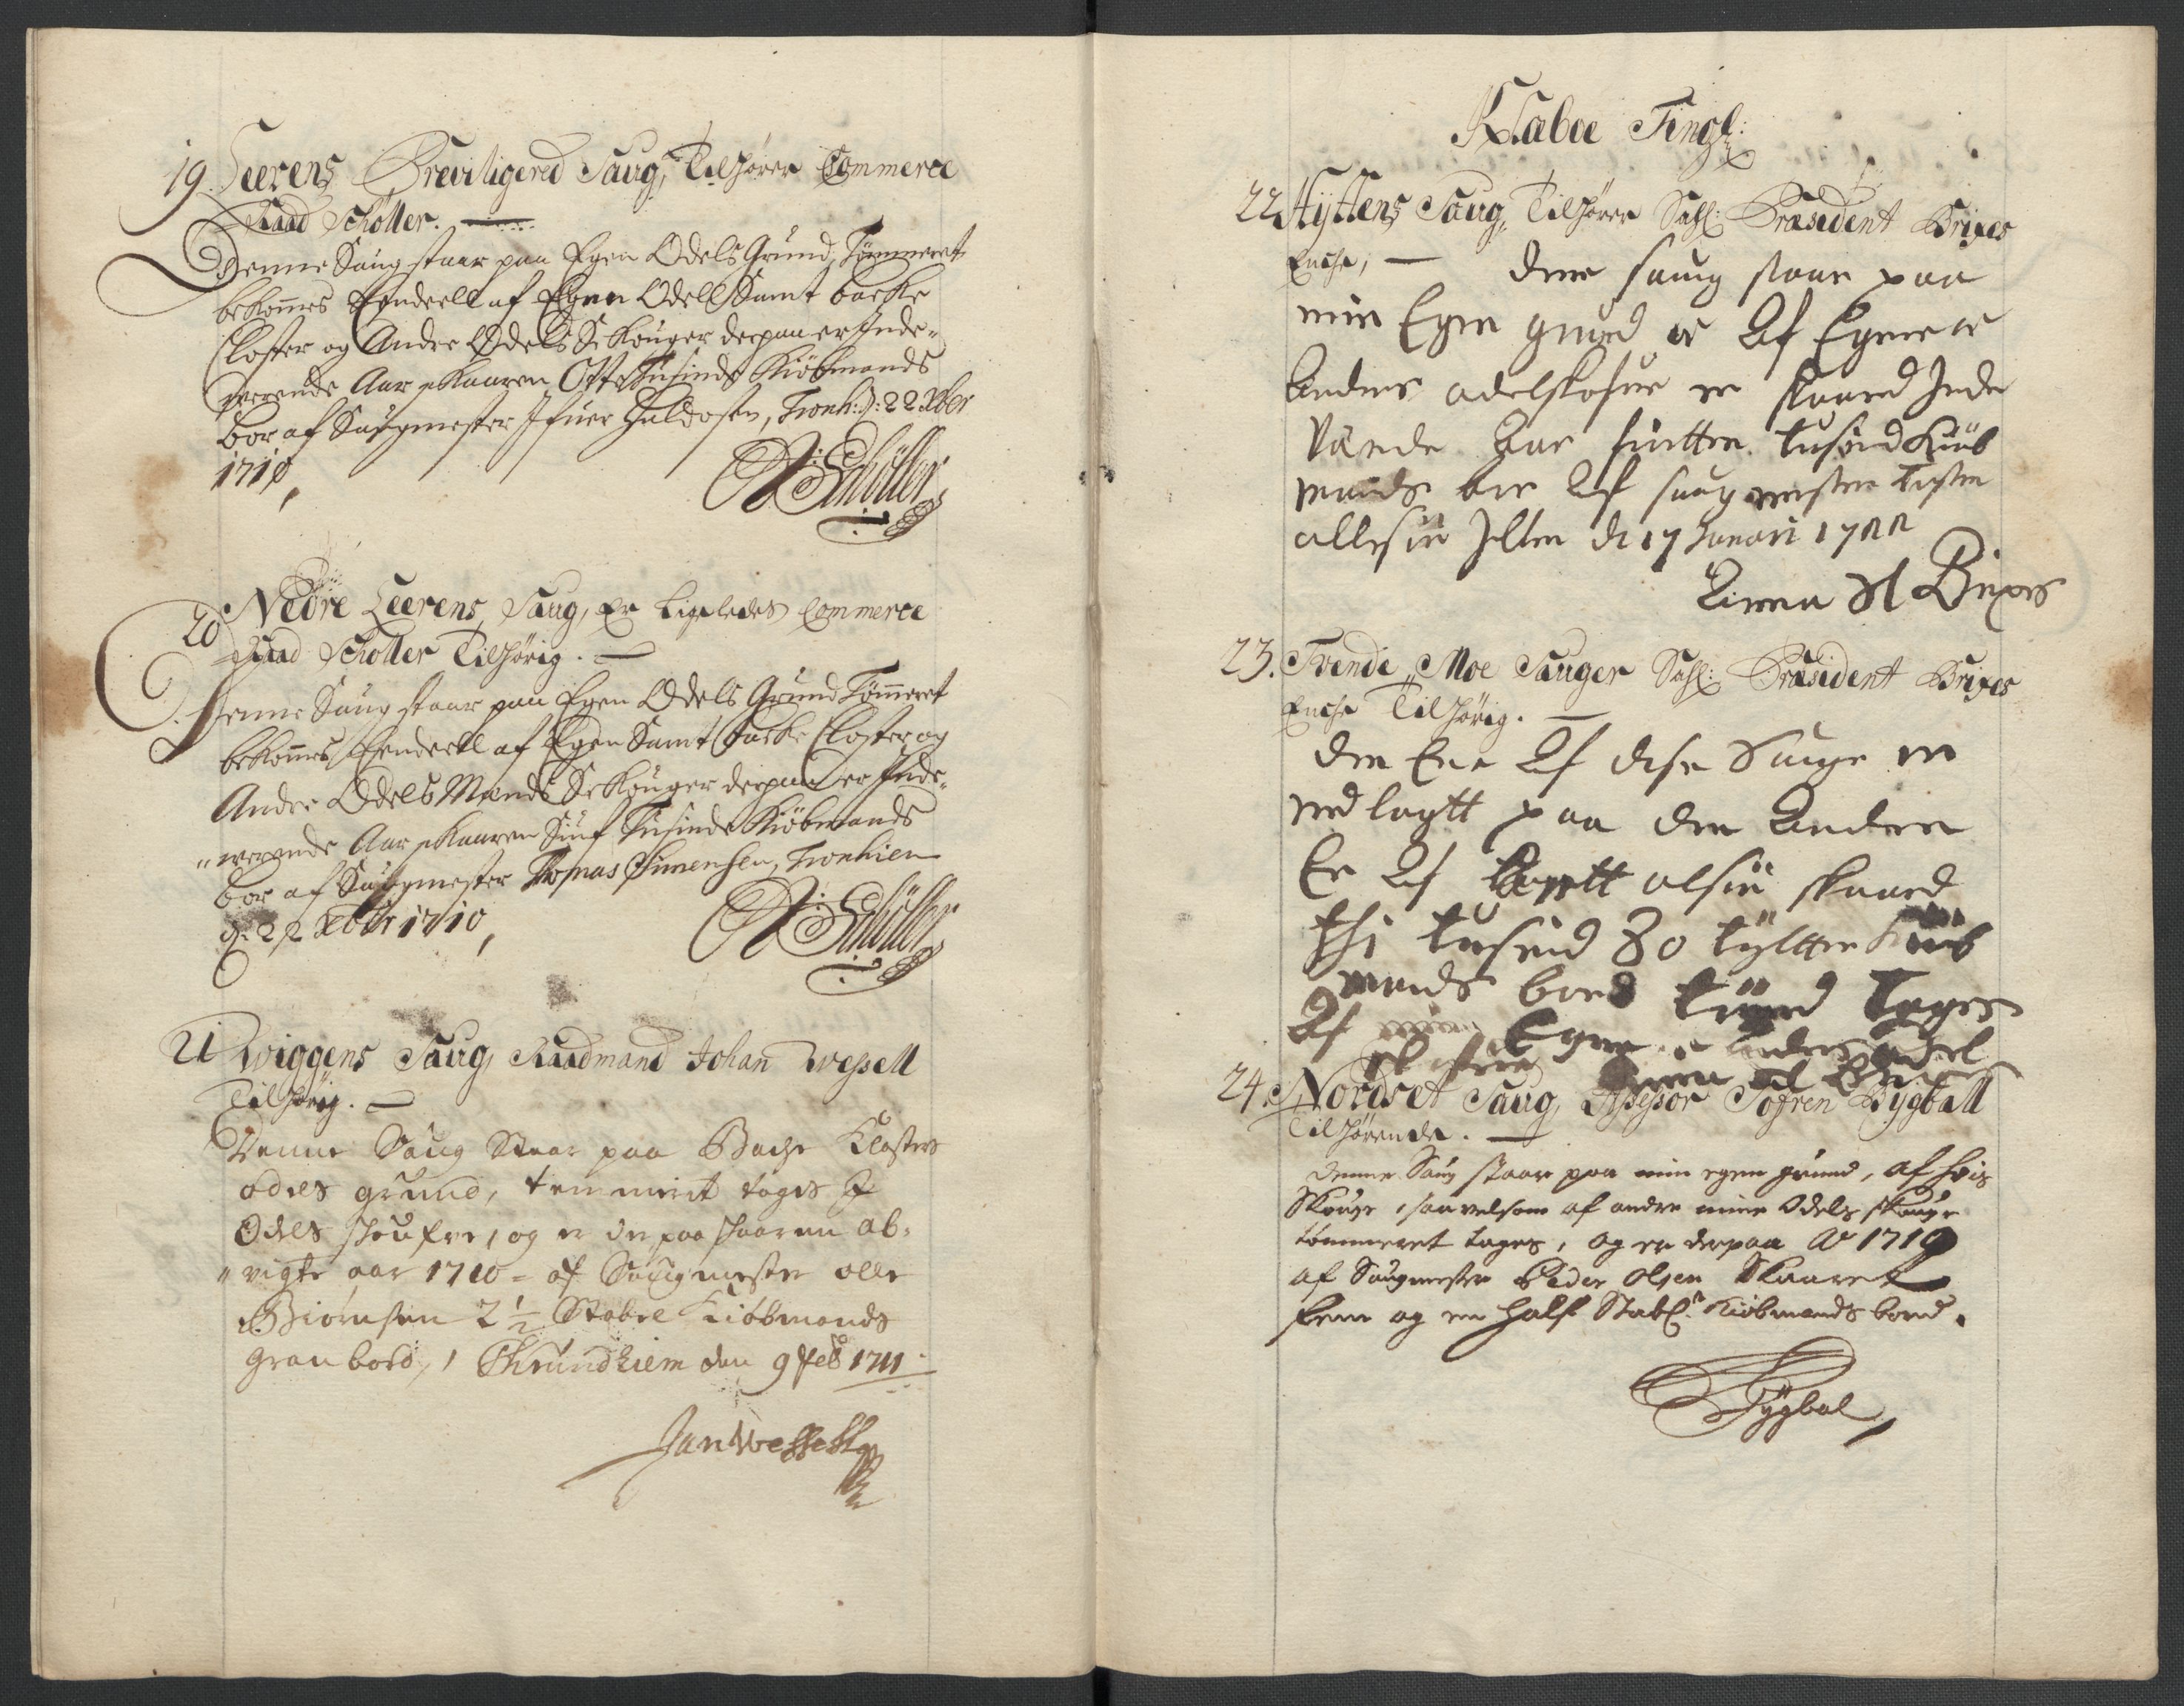 19. Leerens Previligered Saug, Tilhører Commerce
Raad Schøller.
Denne Saug staar paa Egen Odels Grund, Tømmeret
bekomes Eendeell af Egen Odell Samt backe
Closter og Andre Odels Skouger derpaa er Inde-
werende Aar skaaren Otte Tusinde Kiöbmands
bor af Saugmester Ifuer Haldosen, Tronh: d: 22 Xber
1710,
Schöller
20 Nedre Leerens Saug, er Ligeledes Commerce
Raad Schøller Tilhørig.
Denne Saug staar paa Egen Odels Grund Tömeret
bekomes Eendeell af Egen Samt backe Closter og
Andre Odels Mends Skouger derpaa er Inde-
"werende Aar skaaren Siuf Tusinde Kiöbmands
bor af Saugmester Tomas Simensen, Tronhiem
d: 22 Xbr 1710,
Schöller
21 Wiggens Saug, Raadmand Johan Wessell
Tilhørig.
Denne Saug Staar paa Bache Klosters
odels grund, temmerit tages I
Odels skoufve, og er der paa skaaren ab-
"vigte aar 1710 = af Saugmester olle
Biørnsen 2 1/2 Stabel Kiøbmands
granbord, Thrundhiem den 9 Feb 1711
Jan Wessell
Klæboe Tingl:
22 Hyttens Saug, Tilhører Sahl: Præsident Brixes
Enche, den saug staar paa
min Egen grund er Af Egene er
Andres odelskofue er skaared Inde
Værende Aar tusend Kiüb
mands bor Af saug mester
d 17 Januari 1711
Sl Brixes
23. Tvende Moe Sauger Sahl: Præsident Brixes
Enche Tilhørig.
den Ene Af dise Sauge er
ned lagtt paa den Anden
Er Af skaared
thi tusend 80 tyltter Kiüb
mands bord Tages
Af Egne Andres odel
Sl
24. Nordset Saug, Assessor Søfren Bygball
Tilhørende.
denne Saug staar paa min egen grund, af hvis
Skouge, saavelsom af andre mine Odels skouge
tømmeret tages, og er derpaa Ao 1710
af Saugmester Peder Olsen Skaaret
fem og en half Stabl: Kiøbmands bord.
Bygbal